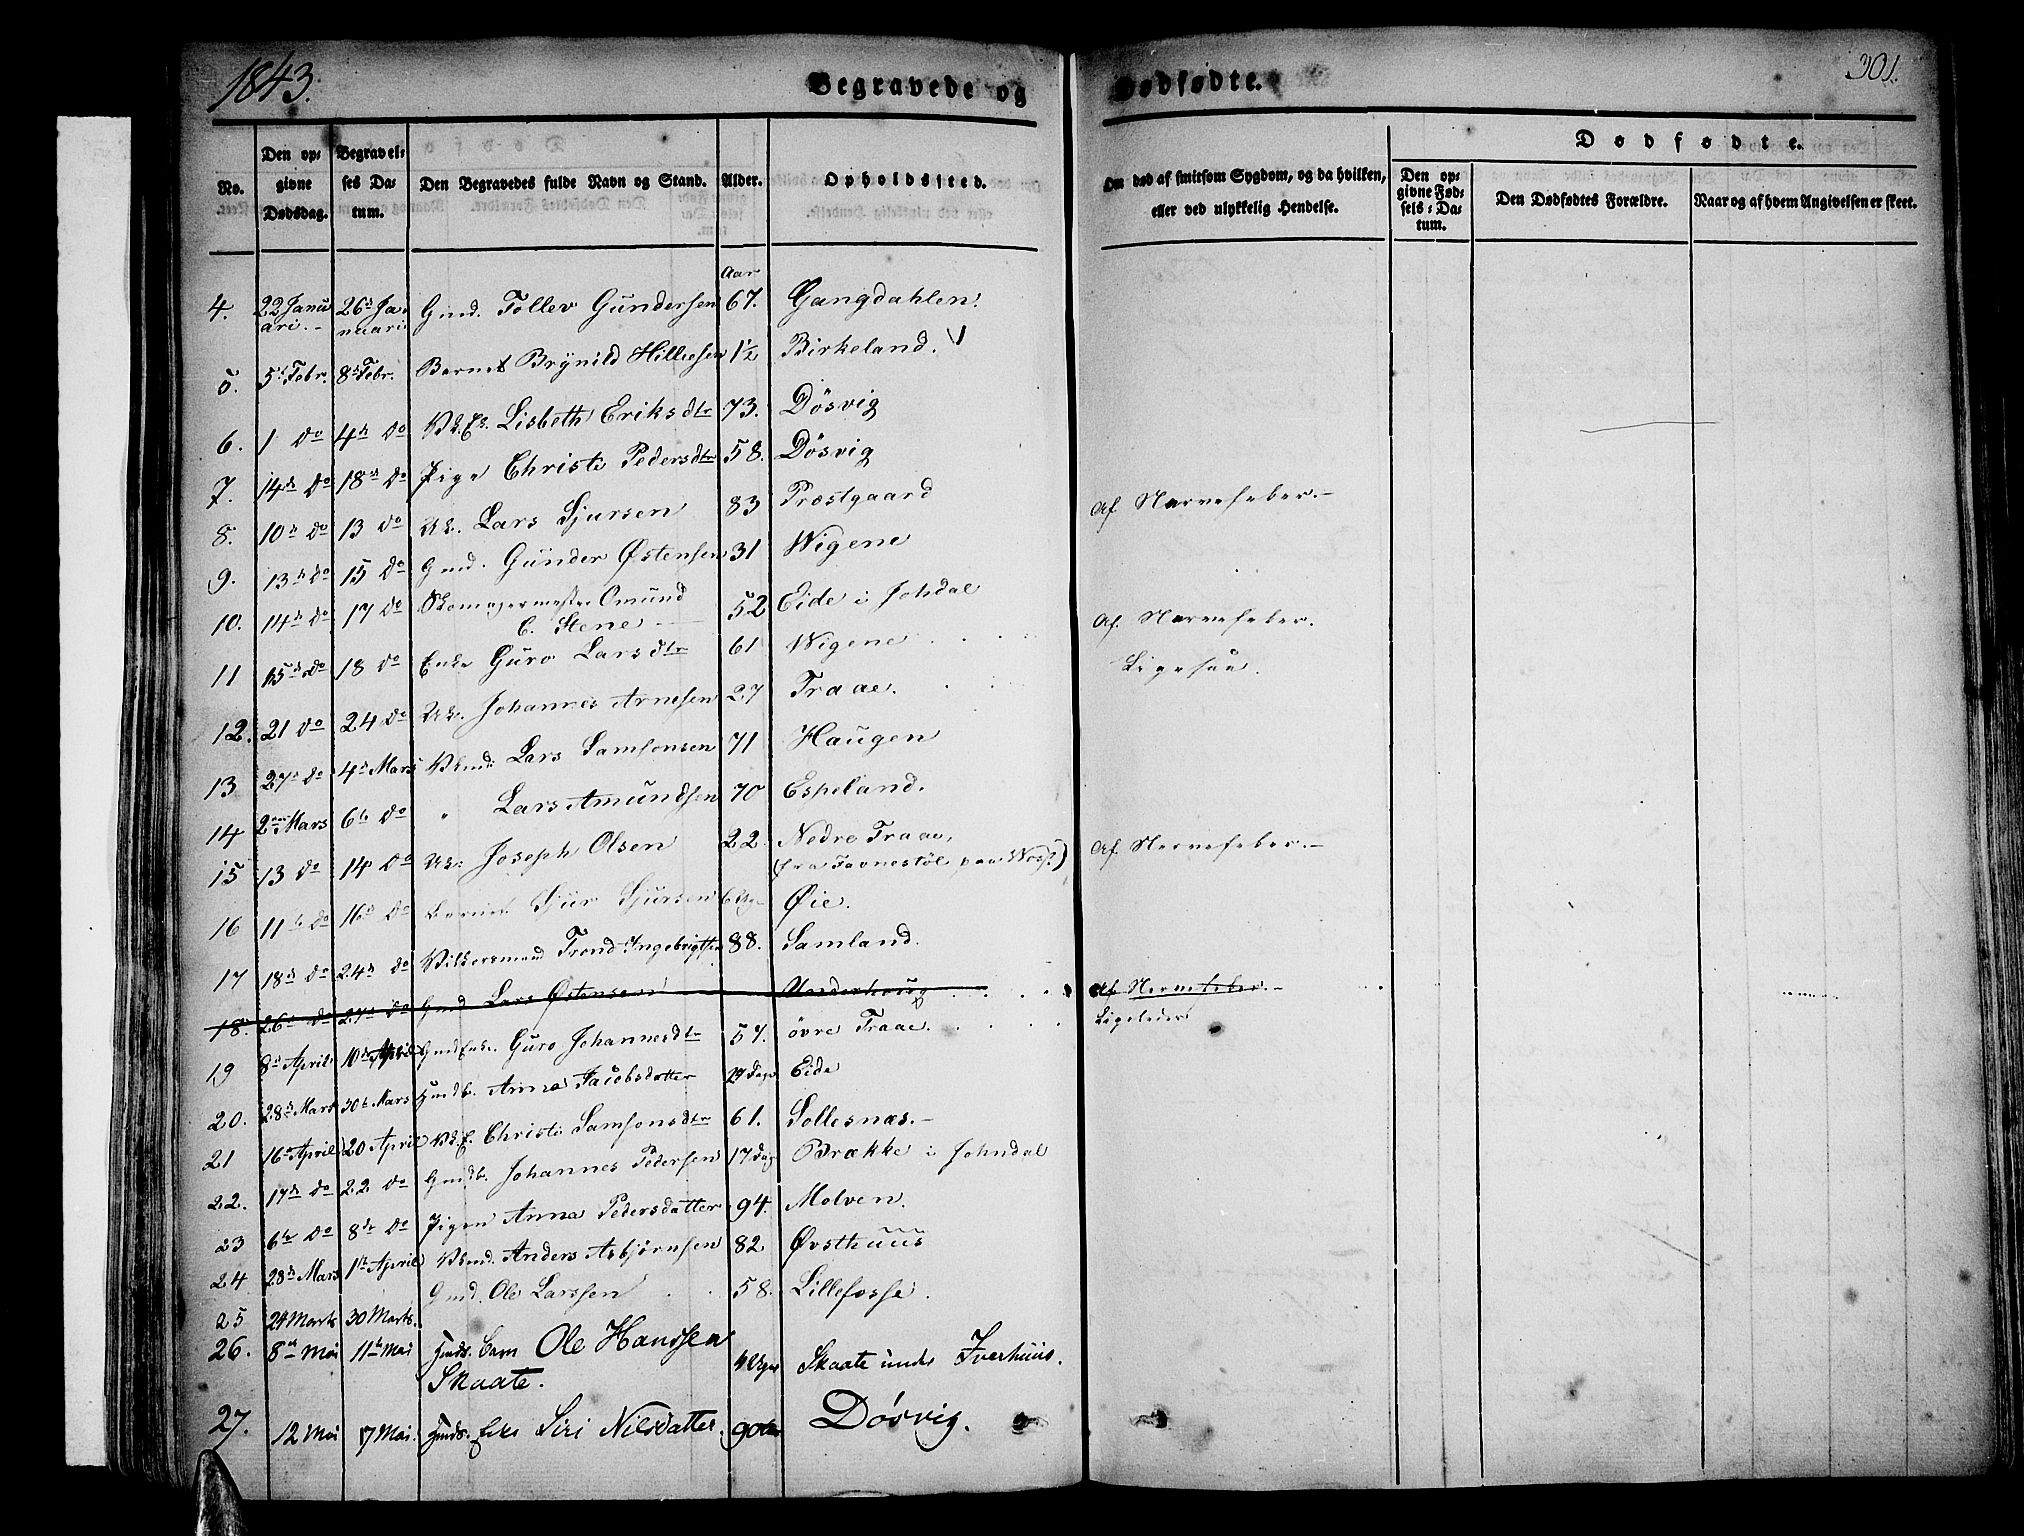 1843.
Begravede og Dødfødte.
301.
No.
Den opgivne Dødsdag.
Begravelses Datum.
Den Begravedes fulde Navn og Stand.
Alder.
Opholdssted.
Om død af smitsom Sygdom, og da hvilken, eller ved ulykkelig Hendelse.
Dødfødte.
Den opgivne Fødsels-Datum.
Den Dødfødtes Forældre.
Naar og af hvem Angivelsen er skeet.
Aar
4. 22 Januari. 26de Januari Gmd. Tollev Gundersen 67. Gangdahlen.
5. 5te Febr. 8de Febr. Barnet Brynild Hillesen 1½ Birkeland. V
6. 1 do 4de do Lisbeth Eriksdtr 73. Døsvig
7. 14de do 18de do Pige Christi Pedersdtr 58. Døsvig
8. 10de do 13 do Uk. Lars Sjursen 83 Præstgaard
Af Nervefeber.
9. 13de do 15 do Gmd. Gunder Østensen 31 Wigene
10. 14de do 17 do Skomagermester Omund C. Stene 52 Eide i Johdal
Af Nervefeber.
11 15de do 18 do Enke Guro Larsdtr 61 Wigene
Ligesaa.
12. 21 do 24 do Uk. Johannes Arnesen 27 Traae.
13 27de do 4de Mars Lars Samsonsen 71 Haugen
14 2den Mars 6te do " Lars Amundsen 70 Espeland.
15 13 do 14 do Uk. Joseph Olsen 22. Nedre Traae,
(fra paa Woss.)
Af Nervefeber.
16 11te do 16de do Barnet Sjur Sjursen 6 Øie.
17 18de do 24de do Trond Ingebrigtsen 88. Samland.
18. 26de do 27de do Gmd Lars Østensen Underhaug
Af Nervefeber.
19 8de April 10de April Gmd Enke Guro Johannesdtr 57. øvre Traae.
Ligeledes
20. 28de Mars 30te Mars Gmdb. Anna Jacobsdatter Dage Eide
21 16de April 20 April Christi Samsonsdtr 61. Sollesnæs.
22. 17de do 22 do Gmdb. Johannes Pedersen 17 Dag Brække i Johndal
23 6te do 8de do Pigen Anna Pedersdatter 94. Molven.
24 28de Mars 1te April Anders Asbjørnsen 82. Øvsthuus
25 24 Marts 30 Marts. Gmd. Ole Larssen 58. Lillefosse.
26. 8de Mai 11te Mai Gmds. Barn Ole Hanssen Skaate. Skaate under Iverhuus.
27. 12 Mai 17 Mai. Gmds. Enke Siri Nilsdatter. 90 Aar Døsvig.